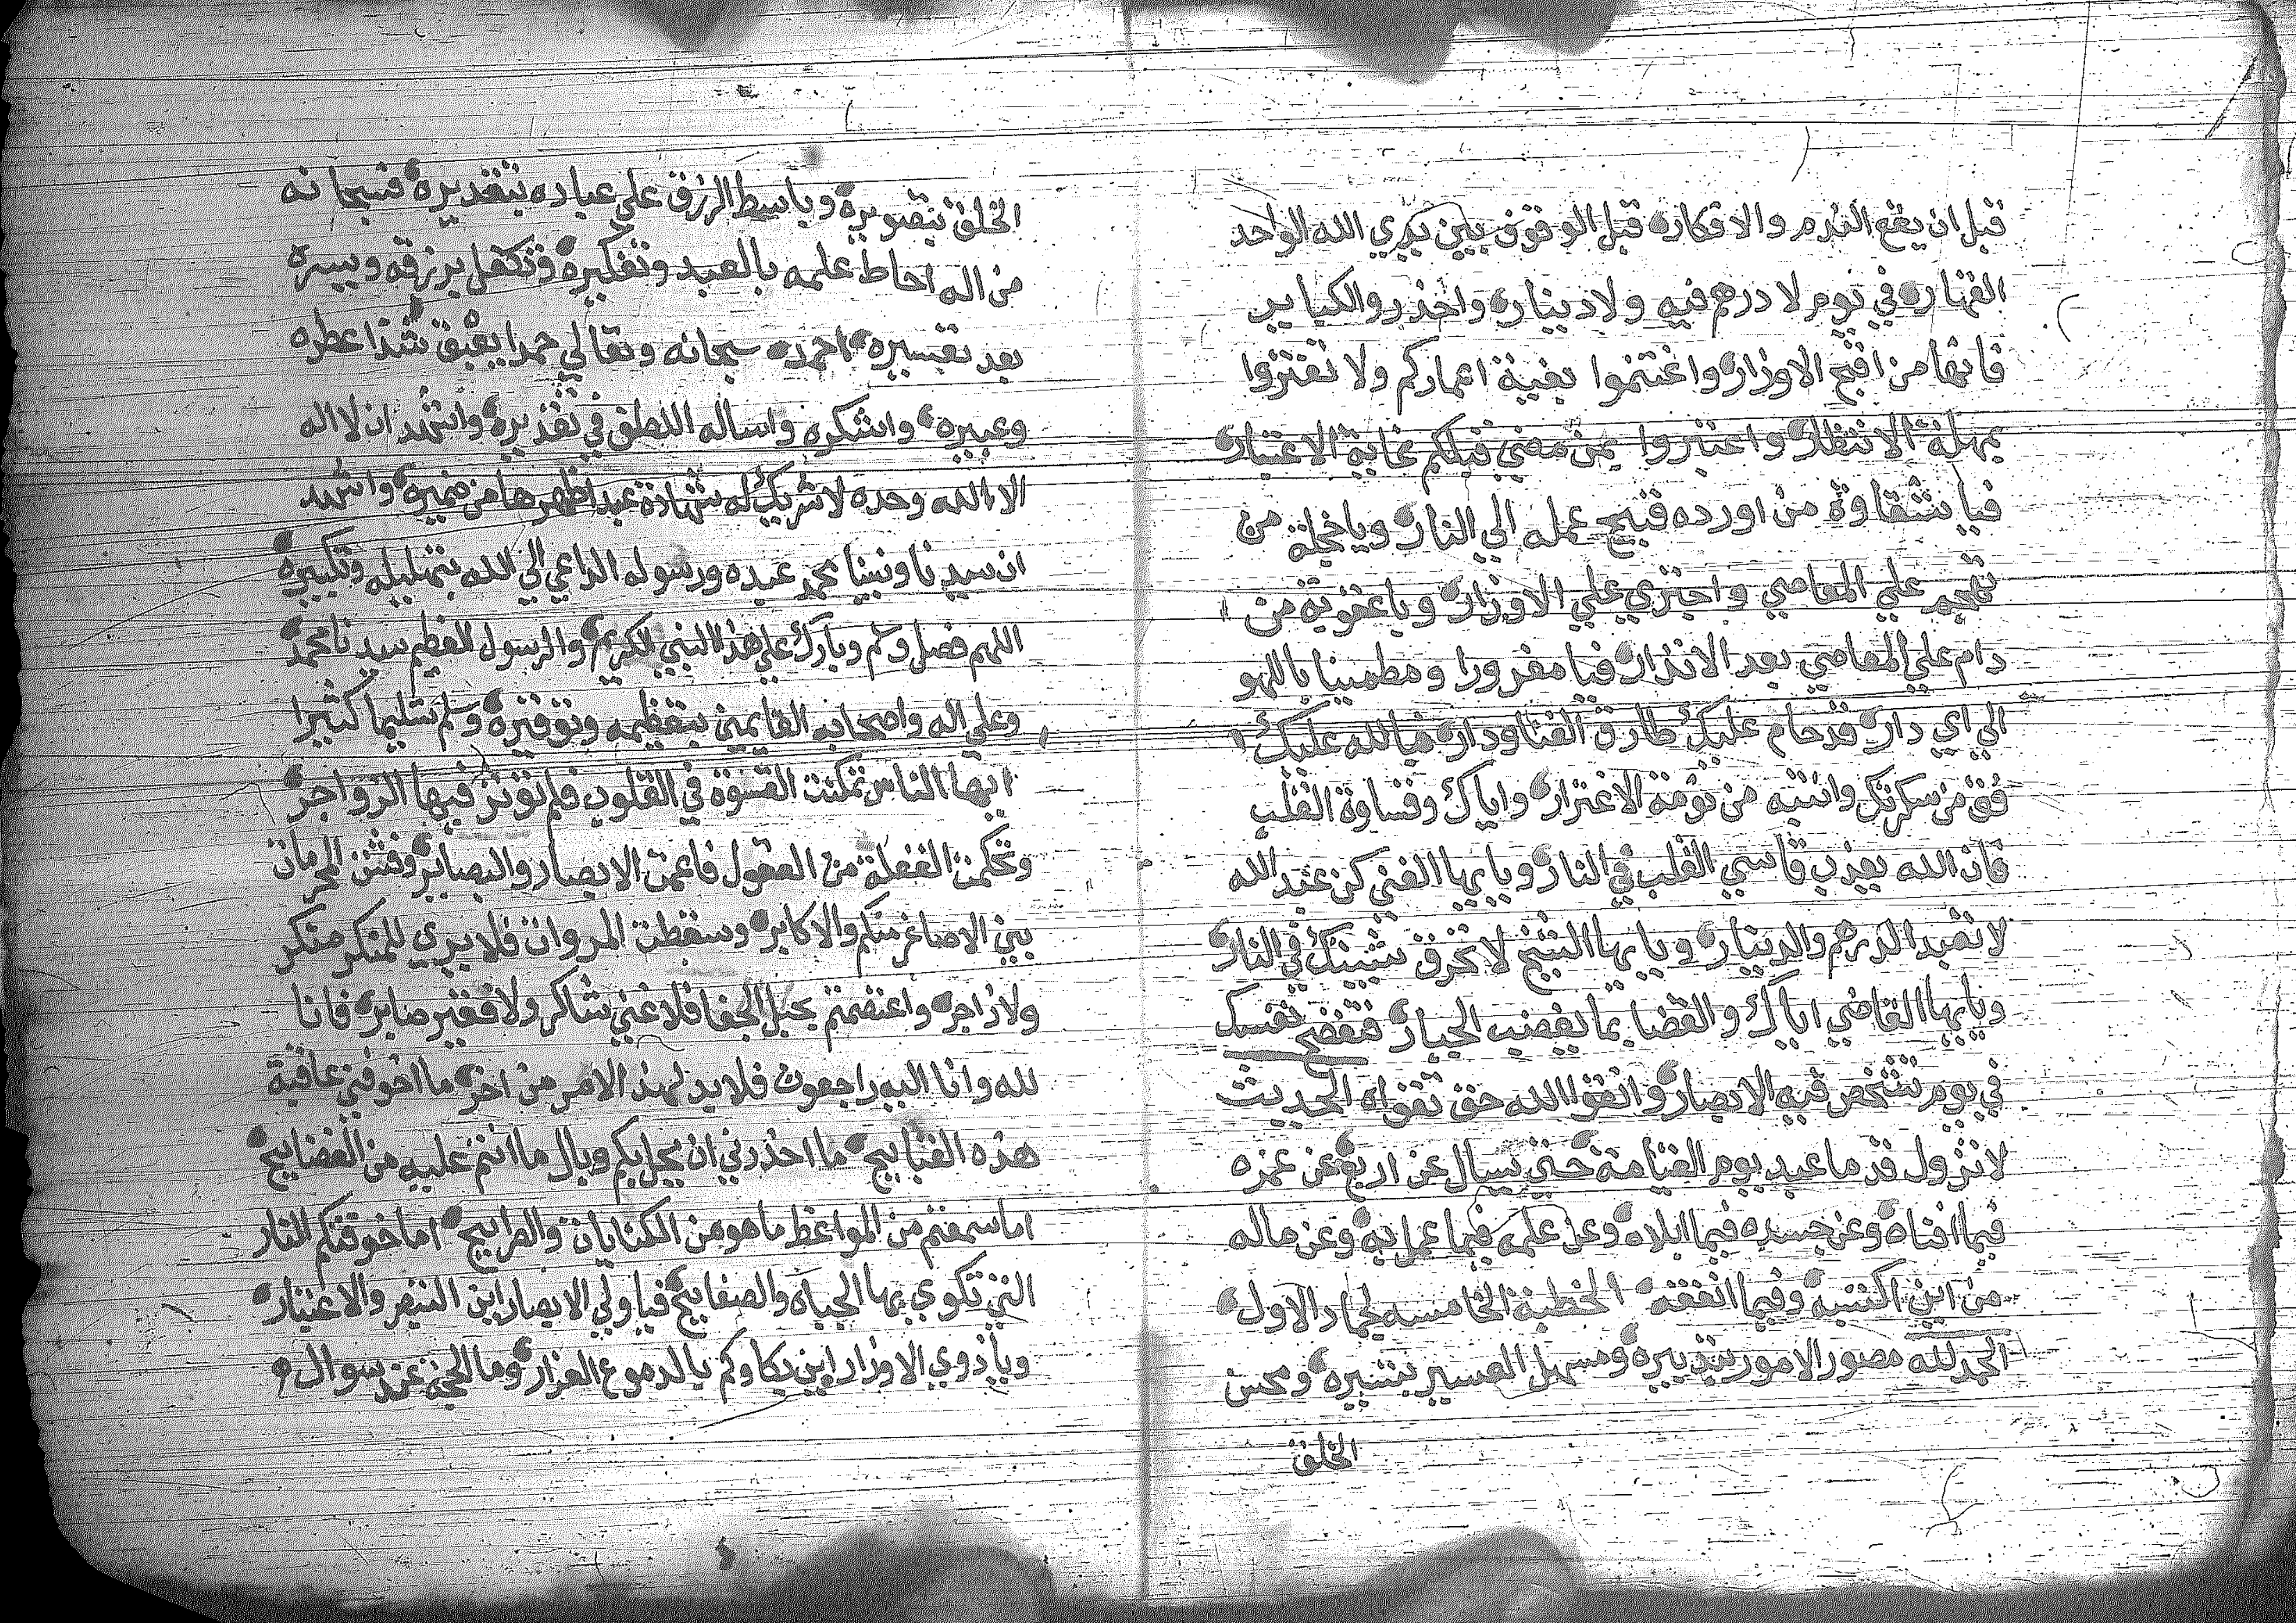 قبل ان يقع الندم والافكار قبل الوقوف بين يدي الله الواحد
القهار في يوم لا درهم فيه ولا دينار واحذروا الكباير
فانها من اقبح الاوزار واغتنموا بقية اعماركم ولا تغتروا
بمهلة الانتظار واعتبروا بمن مضي قبلكم غاية الاعتبار
فيا شقاوة من اورده قبيح عمله الي النار ويا خجلة من
تهجم علي المعاصي واجتري علي الاوزار ويا عقوبة من
دام علي المعاصي بعد الانذار فيا مغرورا ومطمينا باللهو
الي اي دار قد حام عليك طارق الفنا ودار فبالله عليك
فق من سكرتك وانتبه من نومة الاغترار واياك وقساوة القلب
فان الله يعذب قاسي القلب في النار ويا يها الغني كن عبد الله
لا تعبد الدرهم والدينار ويا يها الشيخ لا تحرق شيبتك في النار
ويا يها القاضي اياك والقضا بما يغضب الجبار فتفضح نفسك
في يوم تشخص فيه الابصار واتقوا الله حق تقواه الحديث
لا تزول قدما عبد يوم القيامة حتي يسال عن اربع عن عمره
فيما افناه وعن جسده فيما ابلاه وعن علمه فيما عمل به وعن ماله
من اين اكتسبه وفيما انفقه الخطبة الخامسه لجماد الاول
الحمد لله مصور الامور بتدبيره ومسهل العسير بتيسيره ومحسن
الخلق
الخلق بتصويره وباسط الرزق علي عباده بتقديره فسبحانه
من اله احاط علمه بالعبد وتفكيره وتكفل برزقه ويسره
بعد تعسيره احمده سبحانه وتعالي حمدا يعبق شذا عطره
وعبيره واشكره واساله اللطف في تقديره واشهد ان لا اله
الا الله وحده لا شريك له شهادة عبد اظهرها من ضميره واشهد
ان سيدنا ونبينا محمد عبده ورسوله الداعي الي الله بتهليله وتكبيره
اللهم فصل وسلم وبارك علي هذا النبي الكريم والرسول العظيم سيدنا محمد
وعلي اله واصحابه القايمين بتعظيمه وتوقيره وسلم تسليما كثيرا
ايها الناس تمكنت القسوة في القلوب فلم توثر فيها الزواجر
وتحكمت الغفلة من العقول فاعمت الابصار والبصاير وفشت المحرمات
بين الاصاغر منكم والاكابر وسقطت المروات فلا يري للمنكر منكر
ولا زاجر واعتصمتم بحبل الجفا فلا غني شاكر ولا فقير صابر فانا
لله وانا اليه راجعون فلا بد لهذا الامر من اخر ما اخوفني عاقبة
هذه القبايح ما احذرني ان يحل بكم وبال ما انتم عليه من الفضايح
اما سمعتم من المواعظ ما هو من الكنايات والصرايح اما خوفتكم النار
التي تكوي بها الجباه والصفايح فيا ولي الابصار اين التبصر والاعتبار
ويا ذوي الاوزار اين بكاوكم بالدموع الغزار وما الحجة عند سوال